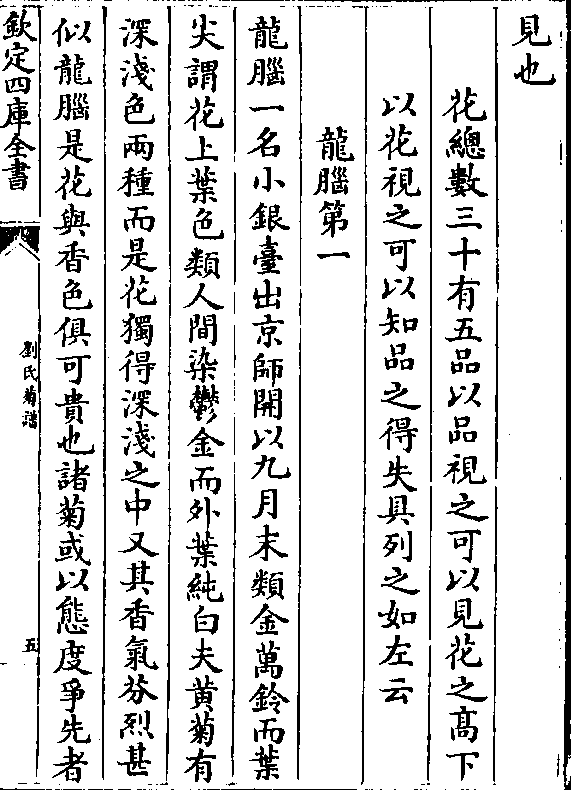 見也
花總數三十有五品以品視之可以見花之髙下
以花視之可以知品之得失具列之如左云
龍腦第一
龍腦一名小銀臺出京師開以九月末類金萬鈴而葉
尖謂花上葉色類人間染鬱金而外葉純白夫黄菊有
深淺色兩種而是花獨得深淺之中又其香氣芬烈甚
似龍腦是花與香色俱可貴也諸菊或以態度爭先者
欽定四庫全書
劉氏菊譜
五